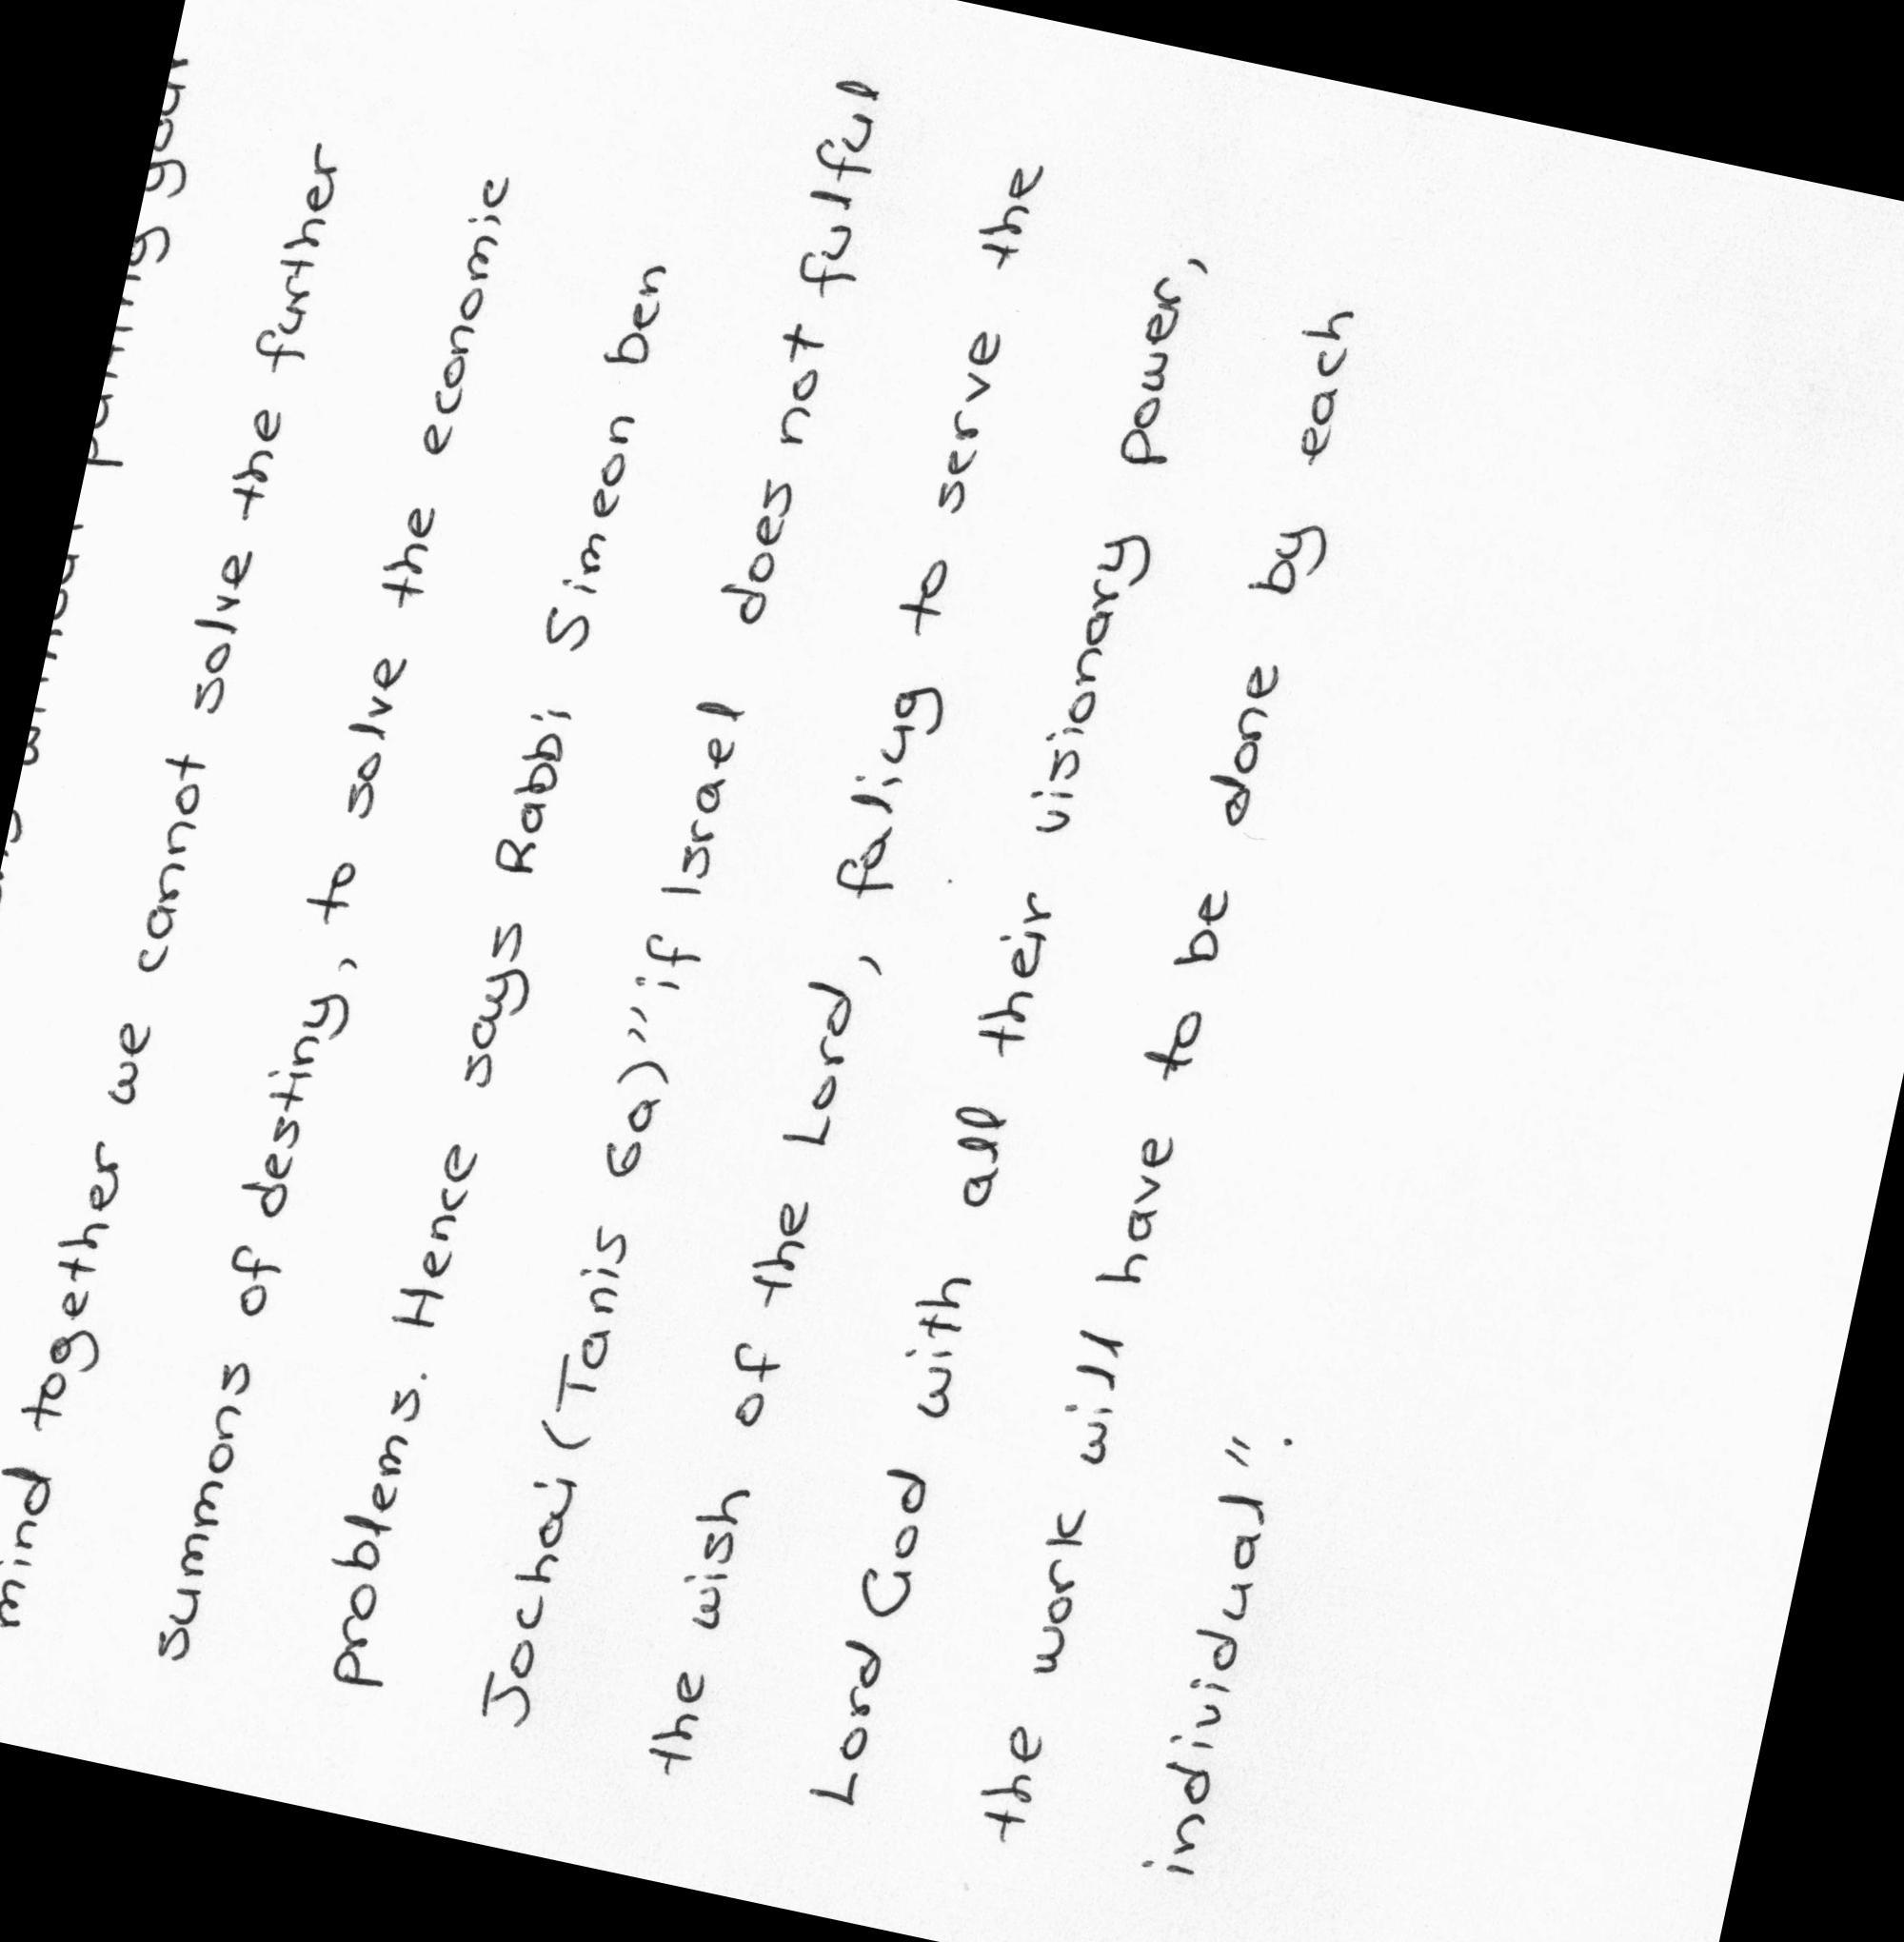 mind together we cannot solve the further
summons of destiny, to solve the economic
problems. Hence says Rabbi Simeon ben
Jochai (Tanis 6a)" if Israel does not fulful
the wish of the Lord, faliyg to serve the
Lord God with all their visionary power,
the work will have to be done by each
individual".